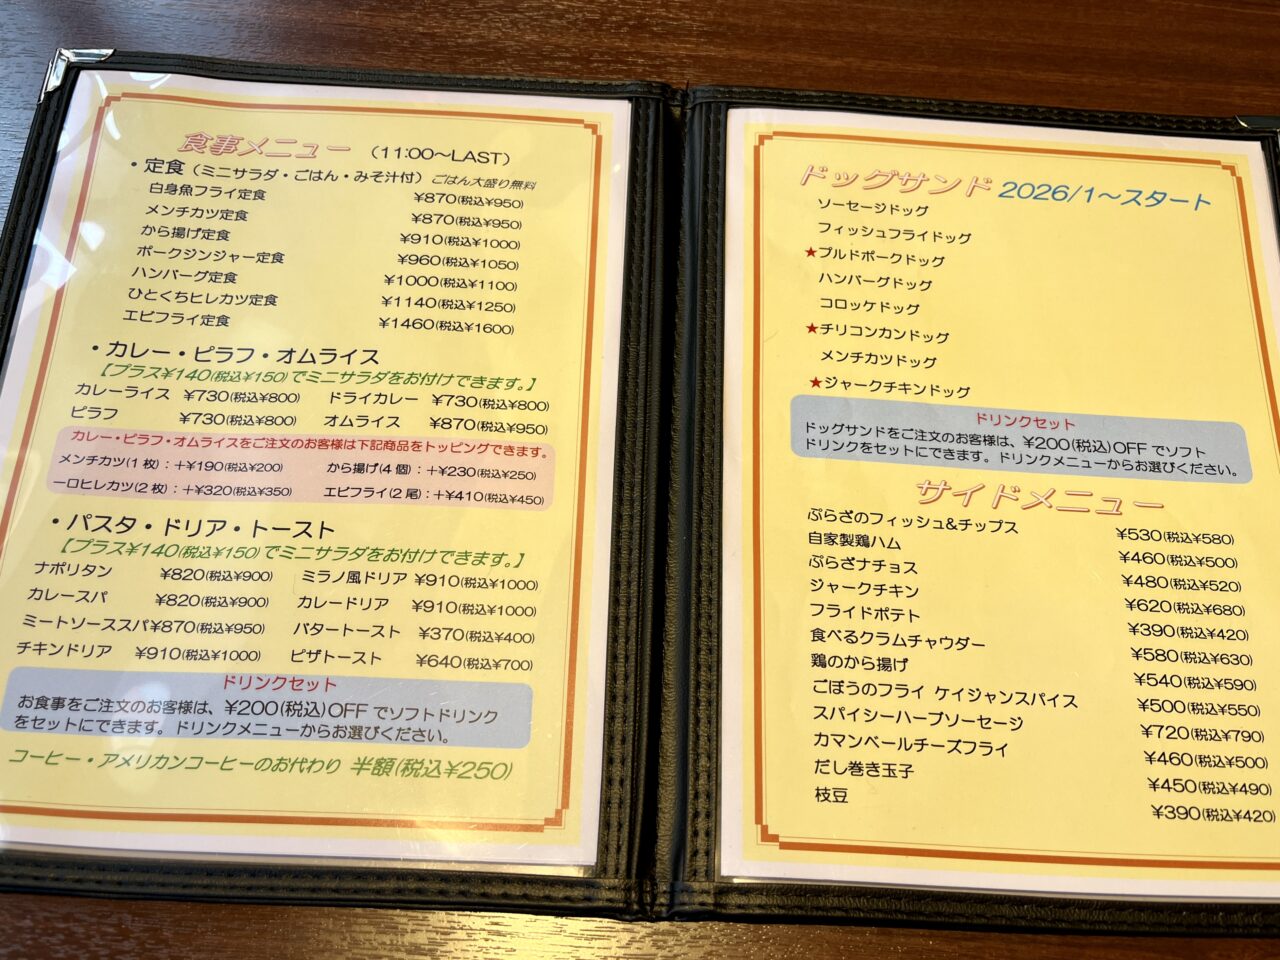 食事メニュー (11:00〜LAST)
・定食(ミニサラダ・ごはん・みそ汁付) ごはん大盛り無料
白身魚フライ定食 ¥870(税込¥950)
メンチカツ定食 ¥870(税込¥950)
から揚げ定食 ¥910(税込¥1000)
ポークジンジャー定食 ¥960(税込¥1050)
ハンバーグ定食 ¥1000(税込¥1100)
ひとくちヒレカツ定食 ¥1140(税込¥1250)
エビフライ定食 ¥1460(税込¥1600)
・カレー・ピラフ・オムライス
【プラス¥140(税込¥150)でミニサラダをお付けできます。】
カレーライス ¥730(税込¥800) ドライカレー ¥730(税込¥800)
ピラフ ¥730(税込¥800) オムライス ¥870(税込¥950)
カレー・ピラフ・オムライスをご注文のお客様は下記商品をトッピングできます。
メンチカツ(1枚):+¥190(税込¥200) から揚げ(4個):+¥230(税込¥250)
一口ヒレカツ(2枚):+¥320(税込¥350) エビフライ(2尾):+¥410(税込¥450)
・パスタ・ドリア・トースト
【プラス¥140(税込¥150)でミニサラダをお付けできます。】
ナポリタン ¥820(税込¥900) ミラノ風ドリア ¥910(税込¥1000)
カレースパ ¥820(税込¥900) カレードリア ¥910(税込¥1000)
ミートソーススパ ¥870(税込¥950) バタートースト ¥370(税込¥400)
チキンドリア ¥910(税込¥1000) ピザトースト ¥640(税込¥700)
ドリンクセット
お食事をご注文のお客様は、¥200(税込)OFFでソフトドリンク
をセットにできます。ドリンクメニューからお選びください。
コーヒー・アメリカンコーヒーのお代わり 半額(税込¥250)
ドッグサンド 2026/1〜スタート
ソーセージドッグ
フィッシュフライドッグ
★プルドポークドッグ
ハンバーグドッグ
コロッケドッグ
★チリコンカンドッグ
メンチカツドッグ
★ジャークチキンドッグ
ドリンクセット
ドッグサンドをご注文のお客様は、¥200(税込)OFFでソフト
ドリンクをセットにできます。ドリンクメニューからお選びください。
サイドメニュー
ぷらざのフィッシュ&チップス ¥530(税込¥580)
自家製鶏ハム ¥460(税込¥500)
ぷらざナチョス ¥480(税込¥520)
ジャークチキン ¥620(税込¥680)
フライドポテト ¥390(税込¥420)
食べるクラムチャウダー ¥580(税込¥630)
鶏のから揚げ ¥540(税込¥590)
ごぼうのフライ ケイジャンスパイス ¥500(税込¥550)
スパイシーハーブソーセージ ¥720(税込¥790)
カマンベールチーズフライ ¥460(税込¥500)
だし巻き玉子 ¥450(税込¥490)
枝豆 ¥390(税込¥420)